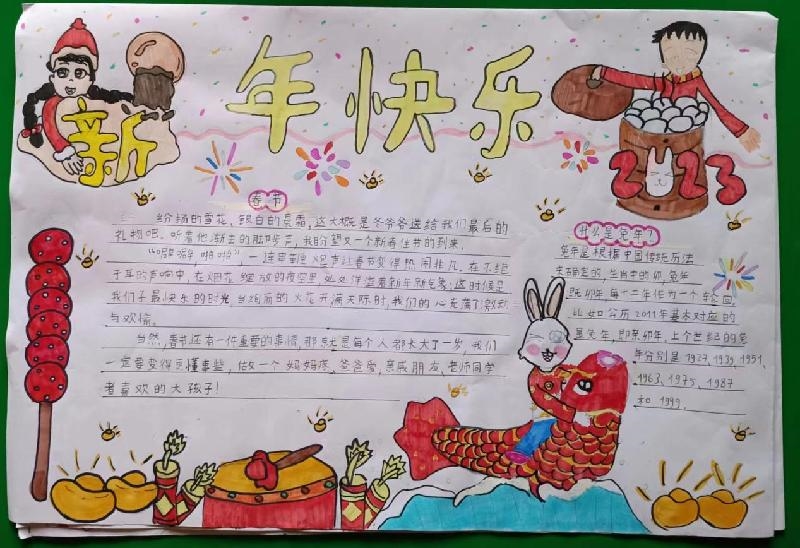 新年快乐
2023
春节
纷扬的雪花,银白的晨霜,这大概是冬爷爷送给我们最后的
礼物吧。听着他渐去的脚步声,我盼望又一个新春佳节的到来。
“噼噼啪啪” 一连串鞭炮声让春节变得热闹非凡,在不绝
于耳的声响中,在烟花绽放的夜空里,处处洋溢着新年新气象;这时候是
我们孩子最快乐的时光,当绚丽的火花开满天际时,我们的心充满了激动
与欢愉。
当然,春节还有一件重要的事情,那就是每个人都长大了一岁,我们
一定要变得更懂事些,做一个妈妈疼,爸爸爱,亲戚朋友,老师同学
者喜欢的大孩子!
什么是兔年?
兔年是根据中国传统历法
来确定的,生肖中的卯,兔年
既卯年每十二年作为一个轮回,
比如公历2011年基本对应的
是兔年,即辛卯年,上个世纪的兔
年分别是1927,1939,1951,
1963,1975,1987
和1999.